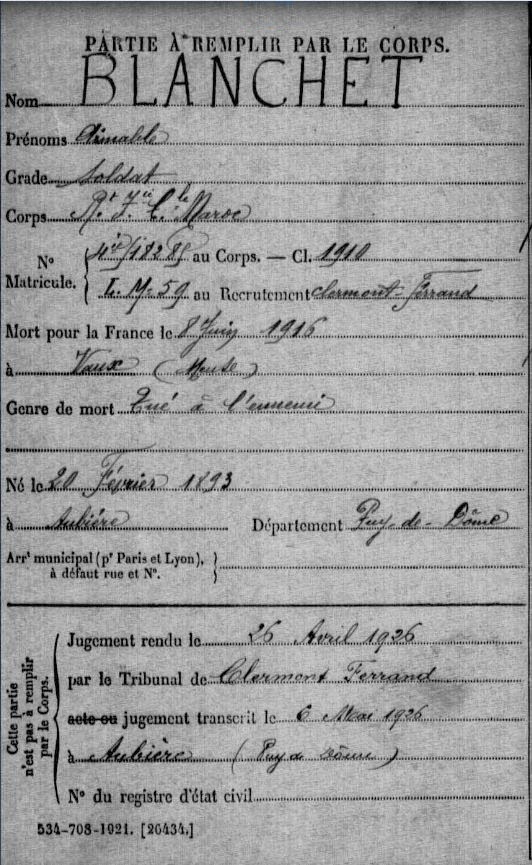 PARTIE À REMPLIR PAR LE CORPS.
Nom BLANCHET
Prénoms Aimable
Grade Soldat
Corps Rt Ie Cle Maroc
N° Matricule. au Corps. — Cl. 1910
L. M. 59 au Recrutement Clermont-Ferrand
Mort pour la France le 8 Juin 1916
à Vaux (Meuse)
Genre de mort Tué à l'ennemi
Né le 20 Février 1893
à Aubière Département Puy-de-Dôme
Arrt municipal (pr Paris et Lyon),
à défaut rue et N°.
Cette partie n'est pas à remplir par le Corps.
Jugement rendu le 26 Avril 1926
par le Tribunal de Clermont Ferrand
acte ou jugement transcrit le 6 Mai 1926
à Aubière (Puy de Dôme)
N° du registre d'état civil
534-708-1921. [26434.]